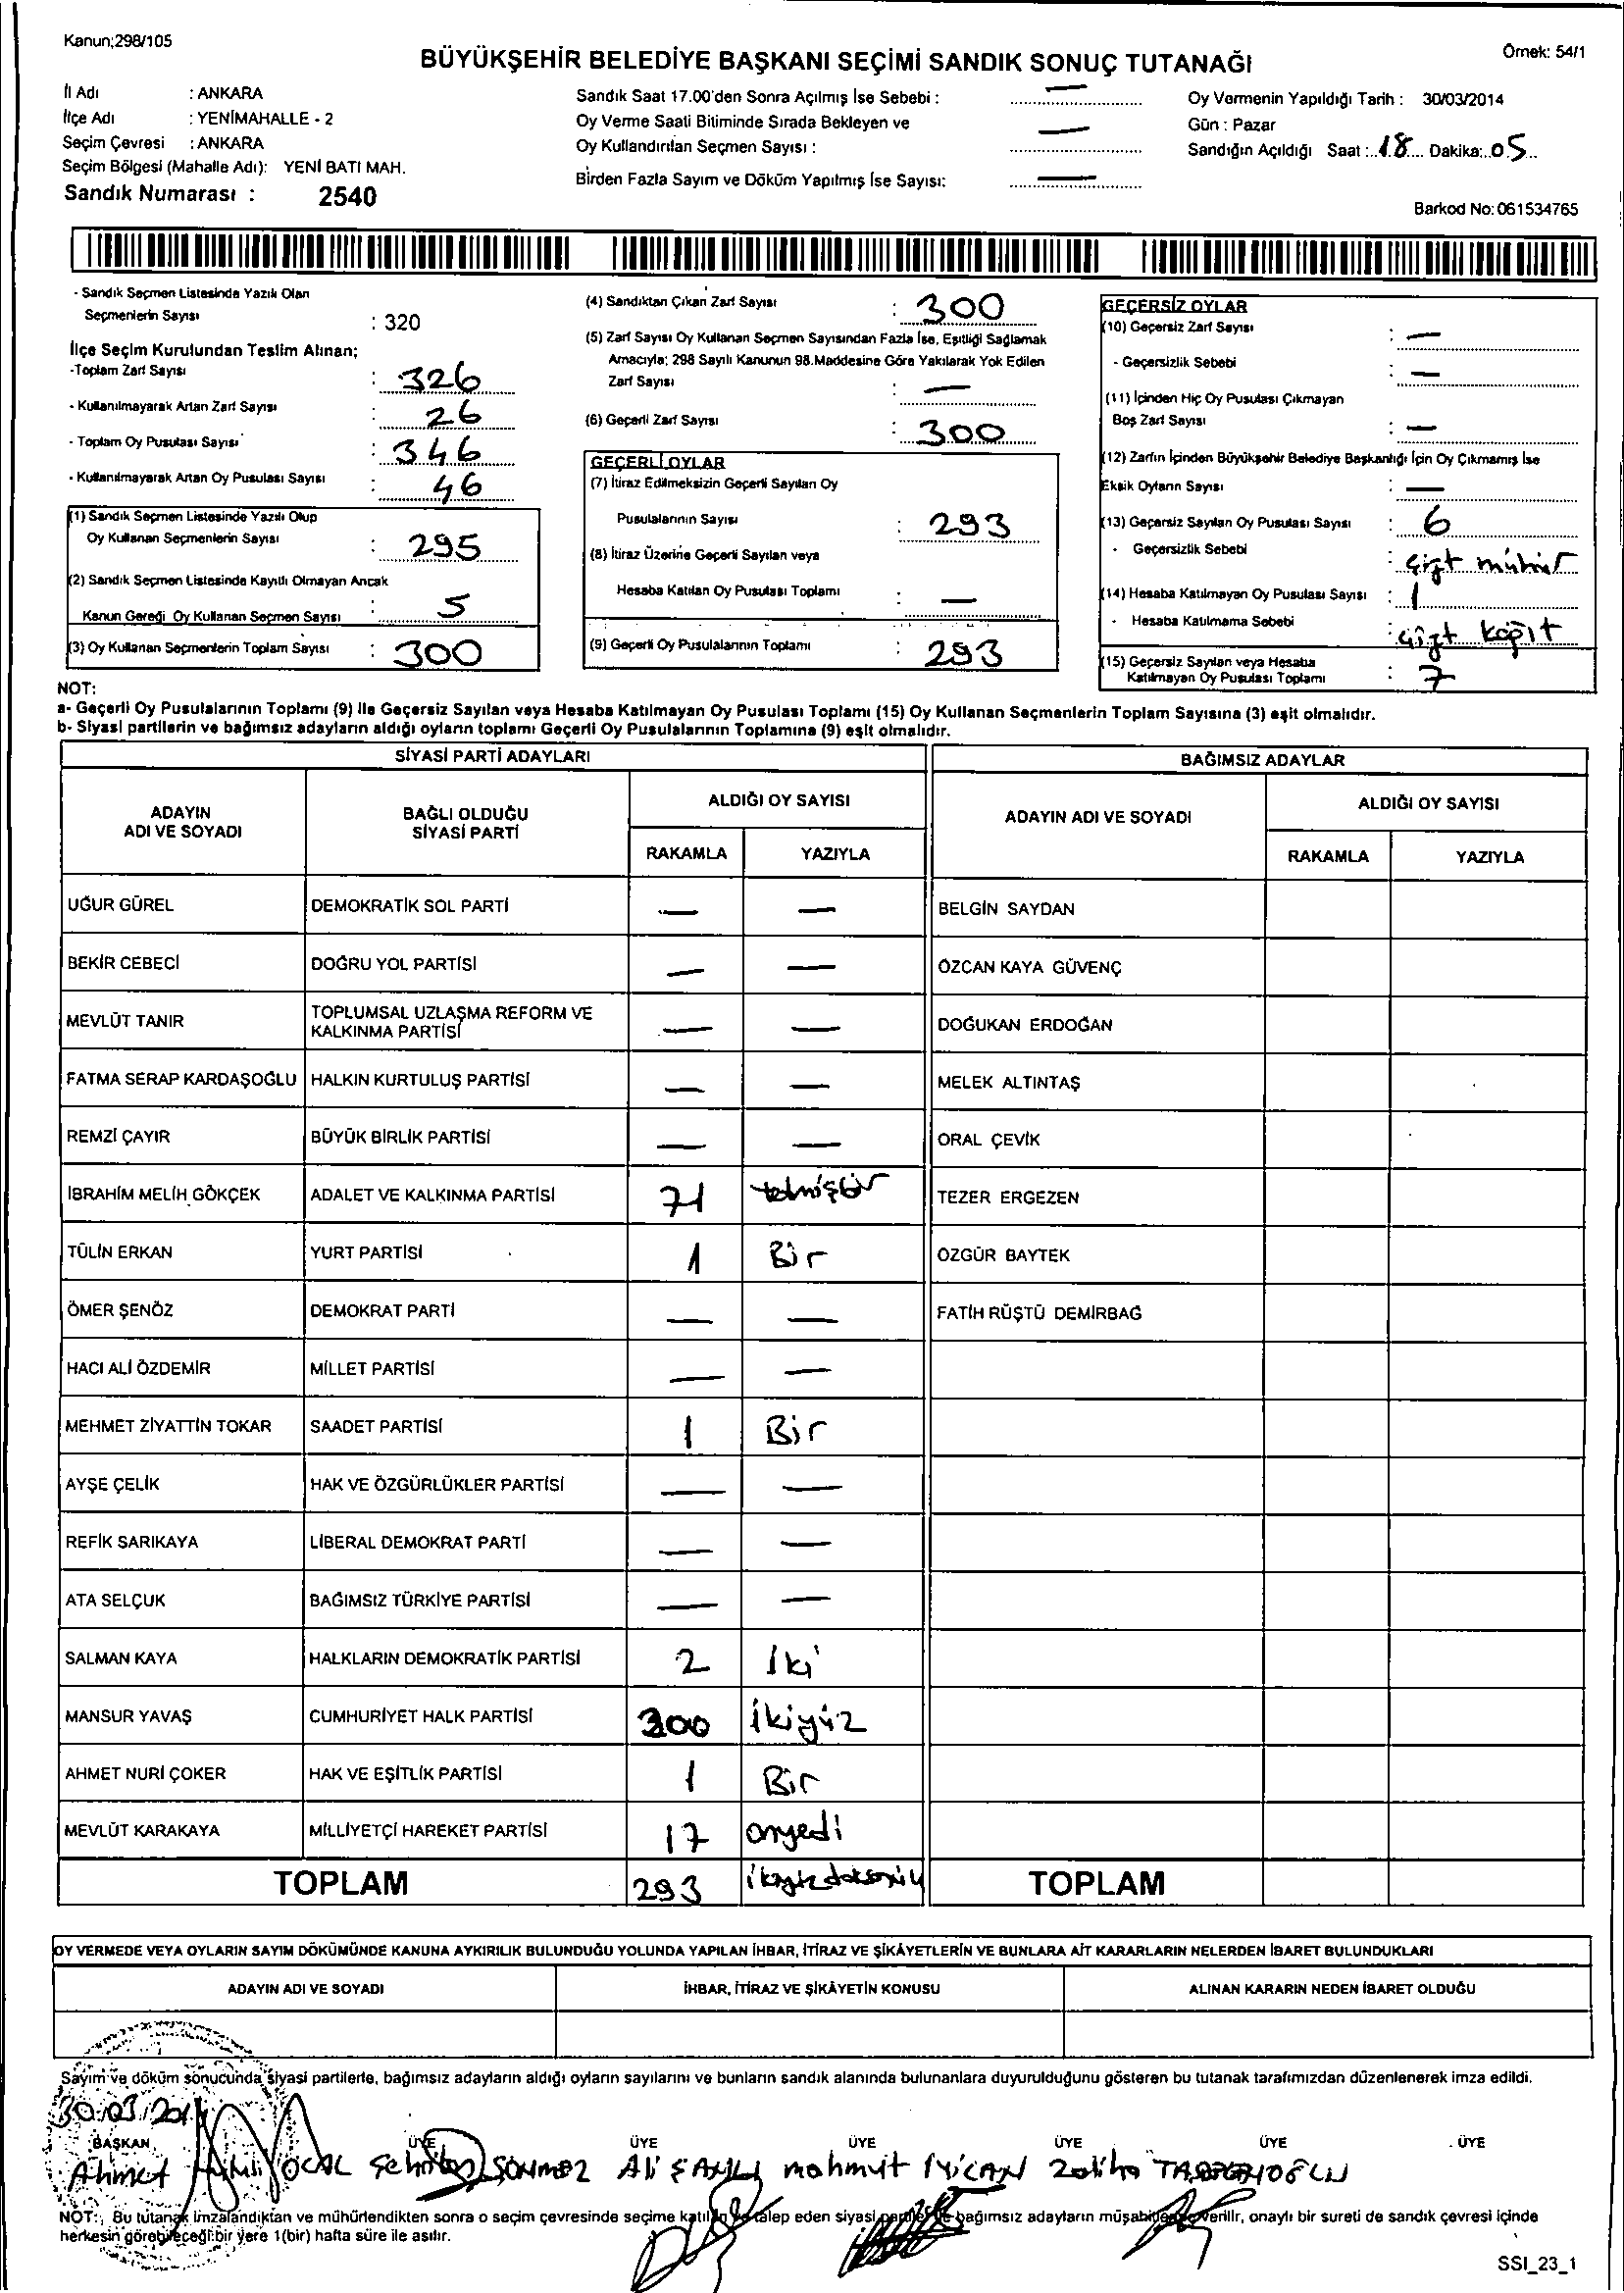 Kanun;298/105
Örnek: 54/1
BÜYÜKŞEHİR BELEDİYE BAŞKANI SEÇİMİ SANDIK SONUÇ TUTANAĞI
İl Adı : ANKARA
İlçe Adı : YENİMAHALLE - 2
Seçim Çevresi : ANKARA
Seçim Bölgesi (Mahalle Adı): YENİ BATI MAH.
Sandık Numarası : 2540
Sandık Saat 17.00'den Sonra Açılmış İse Sebebi : —
Oy Verme Saati Bitiminde Sırada Bekleyen ve
Oy Kullandırılan Seçmen Sayısı : —
Birden Fazla Sayım ve Döküm Yapılmış İse Sayısı: —
Oy Vermenin Yapıldığı Tarih : 30/03/2014
Gün : Pazar
Sandığın Açıldığı Saat : 18 Dakika: 05
Barkod No: 061534765
- Sandık Seçmen Listesinde Yazılı Olan
Seçmenlerin Sayısı : 320
İlçe Seçim Kurulundan Teslim Alınan;
-Toplam Zarf Sayısı : 326
- Kullanılmayarak Artan Zarf Sayısı : 26
- Toplam Oy Pusulası Sayısı : 346
- Kullanılmayarak Artan Oy Pusulası Sayısı : 46
(1) Sandık Seçmen Listesinde Yazılı Olup
Oy Kullanan Seçmenlerin Sayısı : 295
(2) Sandık Seçmen Listesinde Kayıtlı Olmayan Ancak
Kanun Gereği Oy Kullanan Seçmen Sayısı : 5
(3) Oy Kullanan Seçmenlerin Toplam Sayısı : 300
(4) Sandıktan Çıkan Zarf Sayısı : 300
(5) Zarf Sayısı Oy Kullanan Seçmen Sayısından Fazla İse, Eşitliği Sağlamak
Amacıyla; 298 Sayılı Kanunun 98.Maddesine Göre Yakılarak Yok Edilen
Zarf Sayısı : —
(6) Geçerli Zarf Sayısı : 300
GEÇERLİ OYLAR
(7) İtiraz Edilmeksizin Geçerli Sayılan Oy
Pusulalarının Sayısı : 293
(8) İtiraz Üzerine Geçerli Sayılan veya
Hesaba Katılan Oy Pusulası Toplamı : —
(9) Geçerli Oy Pusulalarının Toplamı : 293
GEÇERSİZ OYLAR
(10) Geçersiz Zarf Sayısı : —
- Geçersizlik Sebebi : —
(11) İçinden Hiç Oy Pusulası Çıkmayan
Boş Zarf Sayısı : —
(12) Zarfın İçinden Büyükşehir Belediye Başkanlığı İçin Oy Çıkmamış İse
Eksik Oyların Sayısı : —
(13) Geçersiz Sayılan Oy Pusulası Sayısı : 6
- Geçersizlik Sebebi : çift mühür
(14) Hesaba Katılmayan Oy Pusulası Sayısı : 1
- Hesaba Katılmama Sebebi : çift kağıt
(15) Geçersiz Sayılan veya Hesaba
Katılmayan Oy Pusulası Toplamı : 7
NOT:
a- Geçerli Oy Pusulalarının Toplamı (9) ile Geçersiz Sayılan veya Hesaba Katılmayan Oy Pusulası Toplamı (15) Oy Kullanan Seçmenlerin Toplam Sayısına (3) eşit olmalıdır.
b- Siyasi partilerin ve bağımsız adayların aldığı oyların toplamı Geçerli Oy Pusulalarının Toplamına (9) eşit olmalıdır.
SİYASİ PARTİ ADAYLARI
BAĞIMSIZ ADAYLAR
ADAYIN ADI VE SOYADI
BAĞLI OLDUĞU SİYASİ PARTİ
ALDIĞI OY SAYISI
RAKAMLA YAZIYLA
ADAYIN ADI VE SOYADI
ALDIĞI OY SAYISI
RAKAMLA YAZIYLA
UĞUR GÜREL DEMOKRATİK SOL PARTİ — — BELGİN SAYDAN
BEKİR CEBECİ DOĞRU YOL PARTİSİ — — ÖZCAN KAYA GÜVENÇ
MEVLÜT TANIR TOPLUMSAL UZLAŞMA REFORM VE KALKINMA PARTİSİ — — DOĞUKAN ERDOĞAN
FATMA SERAP KARDAŞOĞLU HALKIN KURTULUŞ PARTİSİ — — MELEK ALTINTAŞ
REMZİ ÇAYIR BÜYÜK BİRLİK PARTİSİ — — ORAL ÇEVİK
İBRAHİM MELİH GÖKÇEK ADALET VE KALKINMA PARTİSİ 71 TEZER ERGEZEN
TÜLİN ERKAN YURT PARTİSİ 1 Bir ÖZGÜR BAYTEK
ÖMER ŞENÖZ DEMOKRAT PARTİ — — FATİH RÜŞTÜ DEMİRBAĞ
HACI ALİ ÖZDEMİR MİLLET PARTİSİ — —
MEHMET ZİYATTİN TOKAR SAADET PARTİSİ 1 Bir
AYŞE ÇELİK HAK VE ÖZGÜRLÜKLER PARTİSİ — —
REFİK SARIKAYA LİBERAL DEMOKRAT PARTİ — —
ATA SELÇUK BAĞIMSIZ TÜRKİYE PARTİSİ — —
SALMAN KAYA HALKLARIN DEMOKRATİK PARTİSİ 2 İki
MANSUR YAVAŞ CUMHURİYET HALK PARTİSİ 200 İkiyüz
AHMET NURİ ÇOKER HAK VE EŞİTLİK PARTİSİ 1 Bir
MEVLÜT KARAKAYA MİLLİYETÇİ HAREKET PARTİSİ 17 onyedi
TOPLAM 293 TOPLAM
OY VERMEDE VEYA OYLARIN SAYIM DÖKÜMÜNDE KANUNA AYKIRILIK BULUNDUĞU YOLUNDA YAPILAN İHBAR, İTİRAZ VE ŞİKÂYETLERİN VE BUNLARA AİT KARARLARIN NELERDEN İBARET BULUNDUKLARI
ADAYIN ADI VE SOYADI İHBAR, İTİRAZ VE ŞİKÂYETİN KONUSU ALINAN KARARIN NEDEN İBARET OLDUĞU
Sayım ve döküm sonucunda siyasi partilerle, bağımsız adayların aldığı oyların sayılarını ve bunların sandık alanında bulunanlara duyurulduğunu gösteren bu tutanak tarafımızdan düzenlenerek imza edildi.
30.03.2014
BAŞKAN ÜYE ÜYE ÜYE ÜYE ÜYE ÜYE
Ahmet ÖCAL SÖNMEZ Ali mahmut İYİCAN Zeliha
NOT: Bu tutanak imzalandıktan ve mühürlendikten sonra o seçim çevresinde seçime katılan ve talep eden siyasi partiler ve bağımsız adayların müşahitlerine verilir, onaylı bir sureti de sandık çevresi içinde
herkesin görebileceği bir yere 1(bir) hafta süre ile asılır.
SSI_23_1